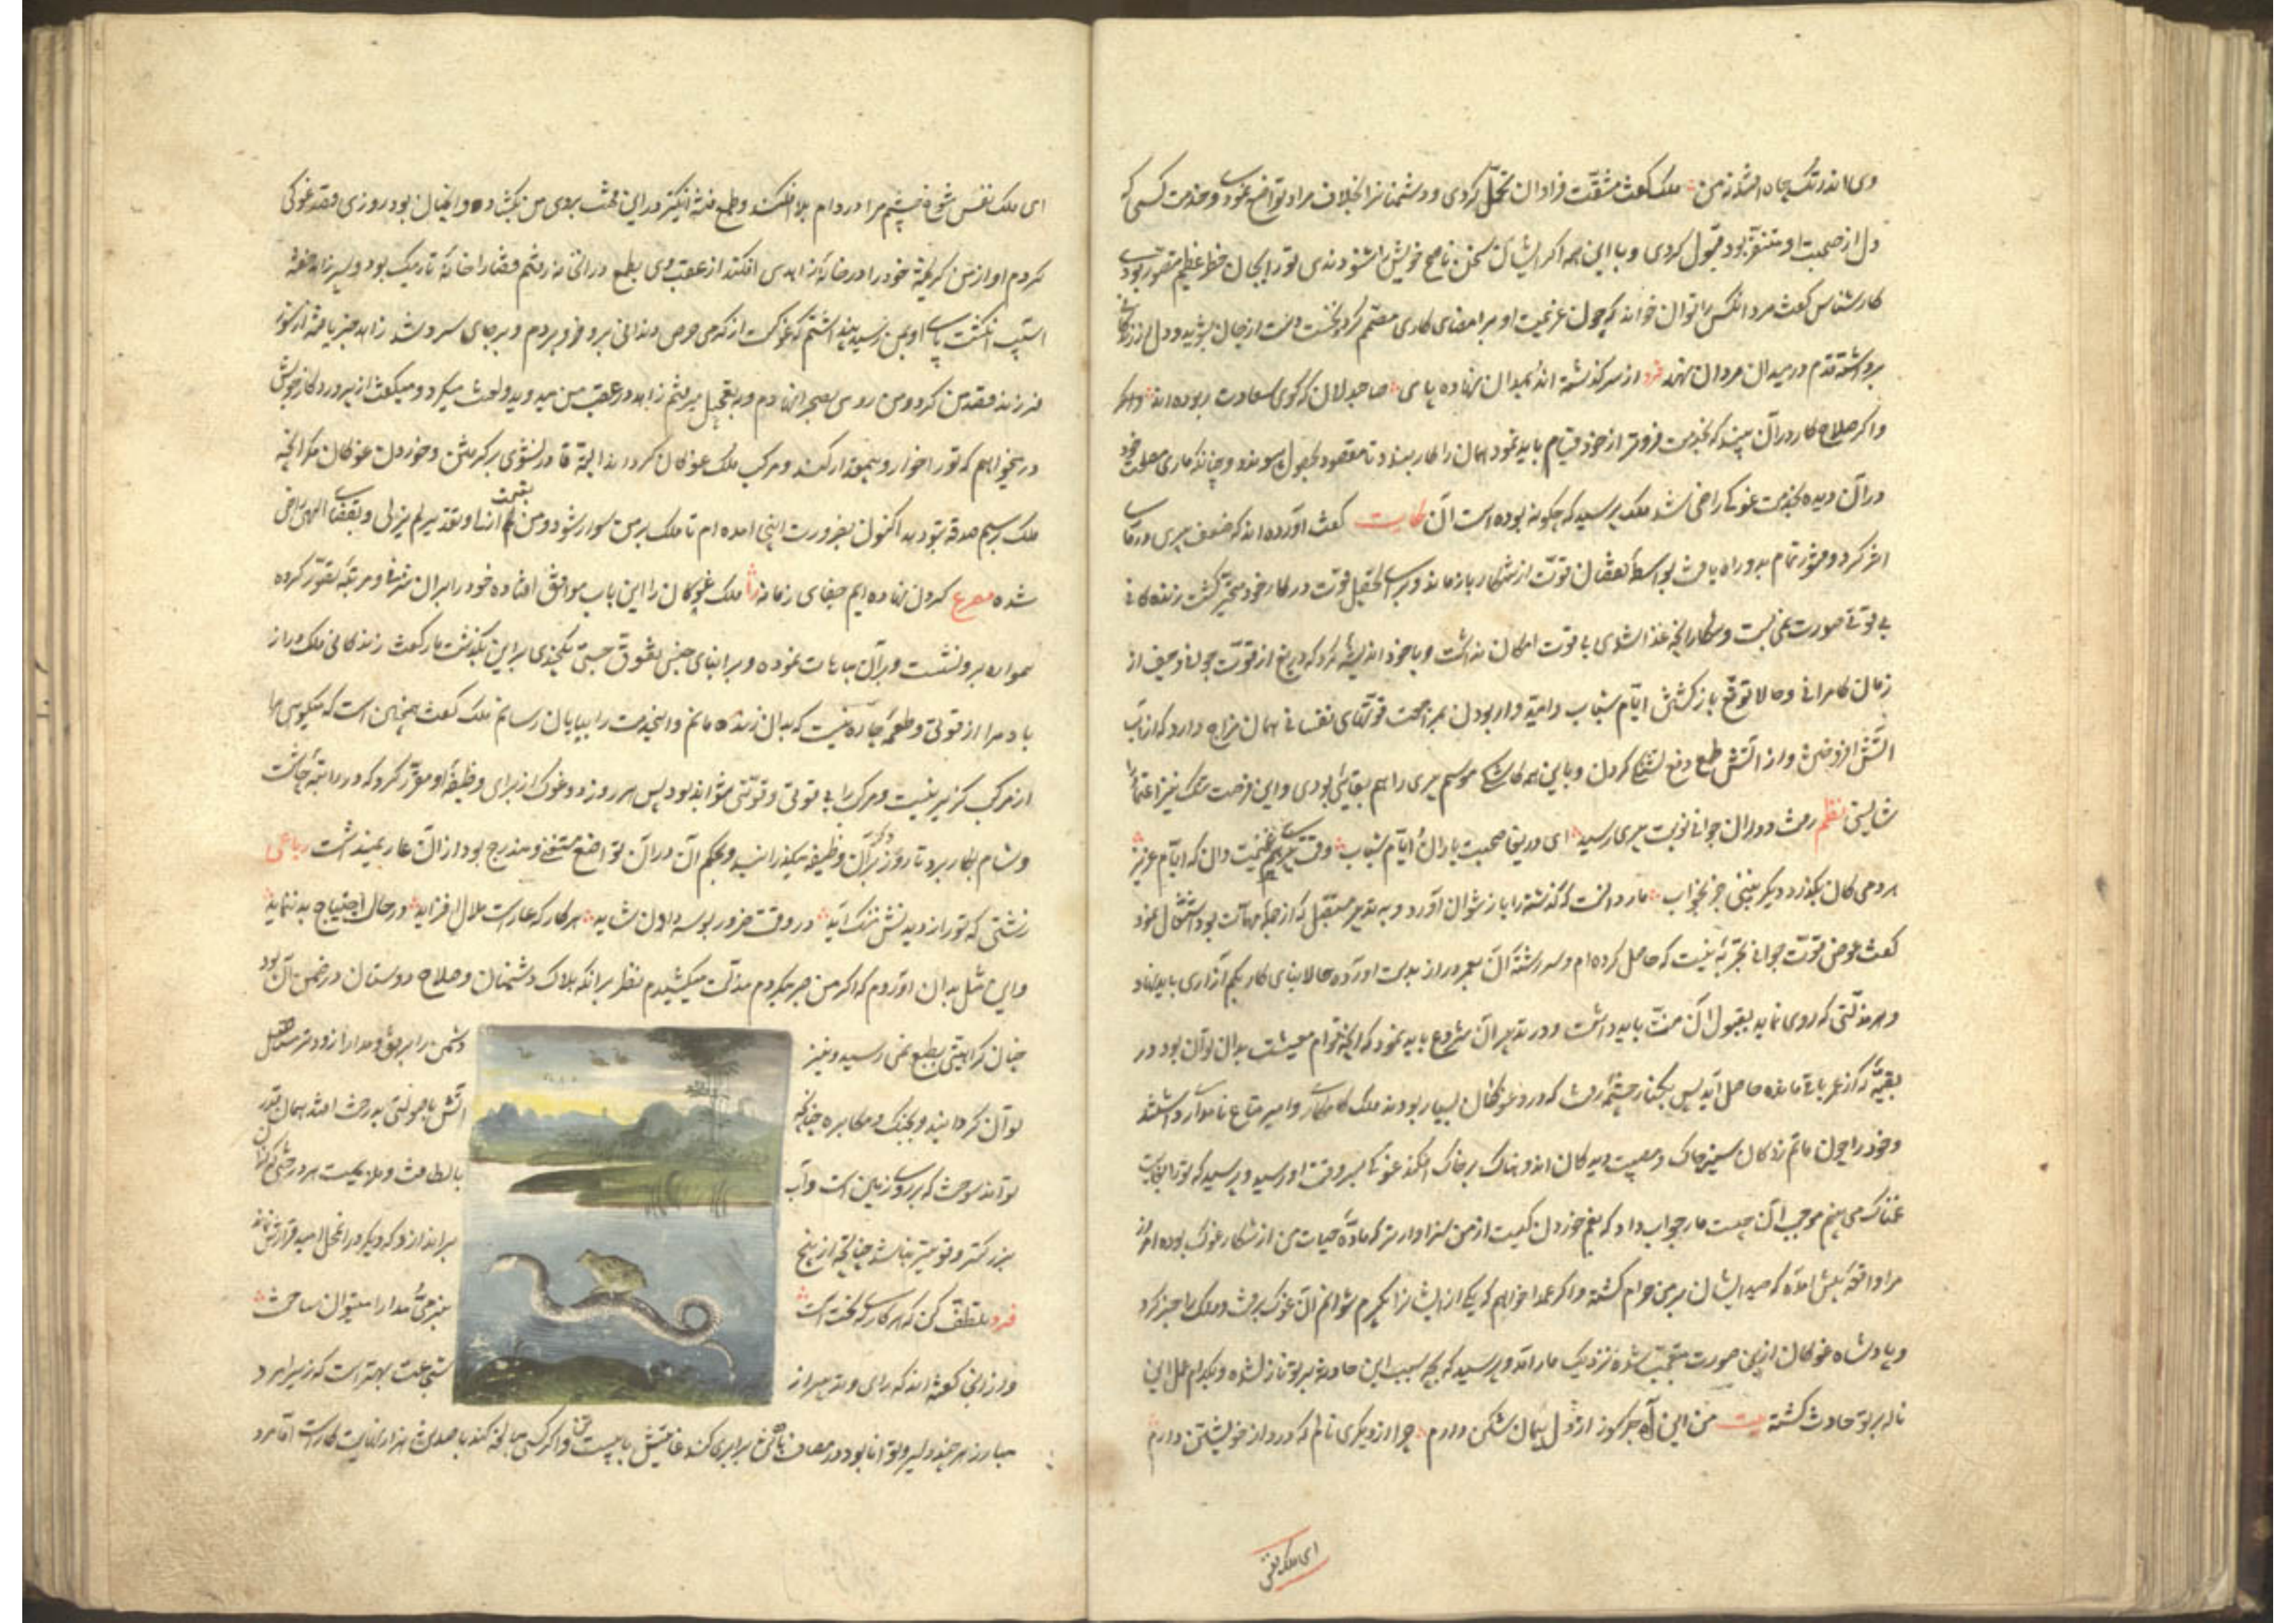 ملک گفت مشقت فراوان تحمل کردی و دشمنانرا بخلاف مراد تواضع نمودی و خدمت کسی که
دل از صحبت او متنفر بود قبول کردی و با این همه اگر ایشان سخن ناصح خویش را شنودندی ترا بجان خطر عظیم متصور بودی
کارشناس گفت مرد آنکس را توان خواند که چون عزیمت او بر امضای کاری مصمم گردد نخست دست از جان بشوید و دل از زندگانی
برداشته قدم در میدان مردان نهد فرد از سر گذشته اند بمیدان نهاده پای صاحبدلان که گوی سعادت ربوده اند
و اگر صلاح کار در آن بیند که بخدمت فروتر از خود قیام باید نمود همان را کار بندد تا مقصود بحصول پیوندد و چنانکه ماری مصلحت خود
در آن دیده بخدمت غوکی راضی شد ملک پرسید که چگونه بوده است آن حکایت گفت آورده اند که ضعف پیری در ماری
اثر کرد و فتور تمام بدو راه یافت بواسطه نقصان قوت از شکار بازماند و برای تحصیل قوت در کار خود متحیر گشت زندگانی
بی قوتی صورت نمی بست و شکار آنچه غذا شدی بی قوت امکان نداشت و با خود اندیشه کرد که دریغ از قوت جوانی و حیف از
زمان کامرانی و حالا توقع بازگشتن ایام شباب و امیدوار بودن بمراجعت قوتهای نفسانی همان مزاج دارد که از آب
آتش افروختن و از آتش طمع دفع تشنگی کردن و با این همه کاشکی موسم پیری را هم بقایی بودی و این فرصت تنگ نیز اعتماد را
شایستی نظم رفت دوران جوانی نوبت پیری رسید ای دریغا صحبت یاران و ایام شباب وقت پیری هم غنیمت دان که ایام عزیز
هر دمی کان بگذرد دیگر نبینی جز بخواب مار دانست که گذشته را باز نتوان آورد و به تدبیر مستقبل که از جمله مهمات بود اشتغال نمود
گفت عوض قوت جوانی تجربه نیست که حاصل کرده ام و سررشته آن بعمر دراز بدست آورده حالا بنای کار بکم آزاری باید نهاد
و هر مذلتی که روی نماید بقبول آن منت باید داشت و در تدبیر آن شروع باید نمود که آنچه قوام معیشت بدان توان بود در
بقیه که از عمر باقی مانده حاصل آید پس بکنار چشمه رفت که در و غوکان بسیار بودند ملک کامگار و امیر متاع نامدار داشتند
و خود را چون ماتم زدگان سینه چاک و مصیبت دیدگان اندوهناک بر خاک افکند غوکی بسروقت او رسید و پرسید که ترا بغایت
غمناک می بینم موجب آن چیست مار جواب داد که بغم خوردن کیست از من سزاوارتر که ماده حیات من از شکار غوک بوده امروز
مرا واقعه پیش آمده که صید ایشان بر من حرام گشته و اگر عمدا خواهم که یکی از ایشانرا بگیرم نتوانم آن غوک برفت و ملک را خبر کرد
و پادشاه غوکان ازین صورت متعجب شده نزدیک مار آمد و پرسید که بچه سبب این حادثه بر تو نازل شده و بکدام عمل این
حادث گشته بیت من این آه جگرسوز از دل پیمان شکن دارم چرا از دیگری نالم که درد از خویشتن دارم
ای ملک نفس
ای ملک نفس شوخ چشم مرا در دام بلا افکند و طمع فتنه انگیز در این محنت بروی من بگشاده و آنچنان بود روزی قصد غوکی
کردم او از من گریخته خود را در خانه زاهدی افکند از عقب وی بطمع در آنخانه رفتم قضارا خانه تاریک بود و پسر زاهد خفته
آسیب انگشت پای او بمن رسید پنداشتم که غوکست از گرمی حرص دندانی برو فرو بردم و بر جای سرد شد زاهد خبر یافته از سوز
فرزند قصد من کرد و من روی بصحرا نهادم و به تعجیل میرفتم زاهد در عقب من میدوید و لعنت میکرد و میگفت از پروردگار خویش
در میخواهم که ترا خوار و بیمقدار کند و مرکب ملک غوکان گرداند البته قادر نشوی بر گرفتن و خوردن غوکان مگر آنچه
ملک برسم صدقه بتو دهد اکنون بضرورت اینجا آمده ام تا ملک بر من سوار شود و من بقسمت و تقدیر لم یزلی و بقضای الهی راضی
شده مصرع گردن نهاده ایم جفای زمانه را ملک غوکان را این باب موافق افتاده خود را بر آن شرفی و مرتبه تصور کرده
همواره برو نشست و بر آن مباهات نموده و بر ابنای جنس تفوق جستی یکچندی بر این بگذشت مار گفت زندگانی ملک دراز
باد مرا از قوتی و طعمه چاره نیست که بدان زنده مانم و اینخدمت را بپایان رسانم ملک گفت همچنین است که میگویی مرا
از مرکب گزیر نیست و مرکب را بی قوتی و قوتی نتواند بود پس هر روز دو غوک از برای وظیفه او مقرر کرد که در راتبه چاشت
و شام بکار برد تا روزگار بر آن وظیفه میگذرانید و بحکم آن در آن تواضع منفعتی مندرج بود از آن عار نمیداشت رباعی
زشتی که ترا از دیدنش ننگ آید در وقت ضرور بوسه دادن شاید هر کار که عارست ملال افزاید در حال احتیاج بد ننماید
و این مثل بدان آوردم که اگر من صبر میکردم و مذلت میکشیدم نظر بر آنکه هلاک دشمنان و صلاح دوستان در ضمن آن بود
چنان کراهیتی بطبع نمی رسید و نیز دشمن را برفق و مدارا زودتر مستأصل
توان گردانید و بجنگ و مکابره چنانکه آتش با صولتی بدرخت افتد همان قدر
تواند سوخت که بر روی زمین است و آب با لطافت و ملایمت هر درختی که از آن
بزرگتر و قویتر نباشد چنانچه از بیخ براندازد که دیگر در آنمحل امید قرارش نماند
فرد تلطف کن که هر کاری که سخت است بنرمی مدارا میتوان ساخت
و ازانجا گفته اند که رای و تدبیر از شجاعت بهتر است که زیرا مرد
مبارز هر چند دلیر و توانا بود در مصاف با ده تن برابری کند غایتش با بیست تن و اگر کسی مبالغه کند با صد تن هزار نهایت کارست اما مرد